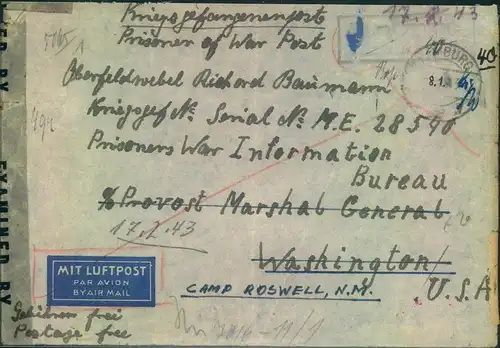 Kriegsgefangenenpost
17.2.43
Prisoner of War Post
40
Oberfeldwebel Richard Baumann
8.1.
Kriegsgef Nº Serial Nº M.E. 28540
Prisoners War Information
Bureau
c/o Provost Marshal General
17.2.43
Washington
CAMP ROSWELL, N.M.
U.S.A
MIT LUFTPOST
PAR AVION
BY AIR MAIL
Gebühren frei
Postage free
EXAMINER BY